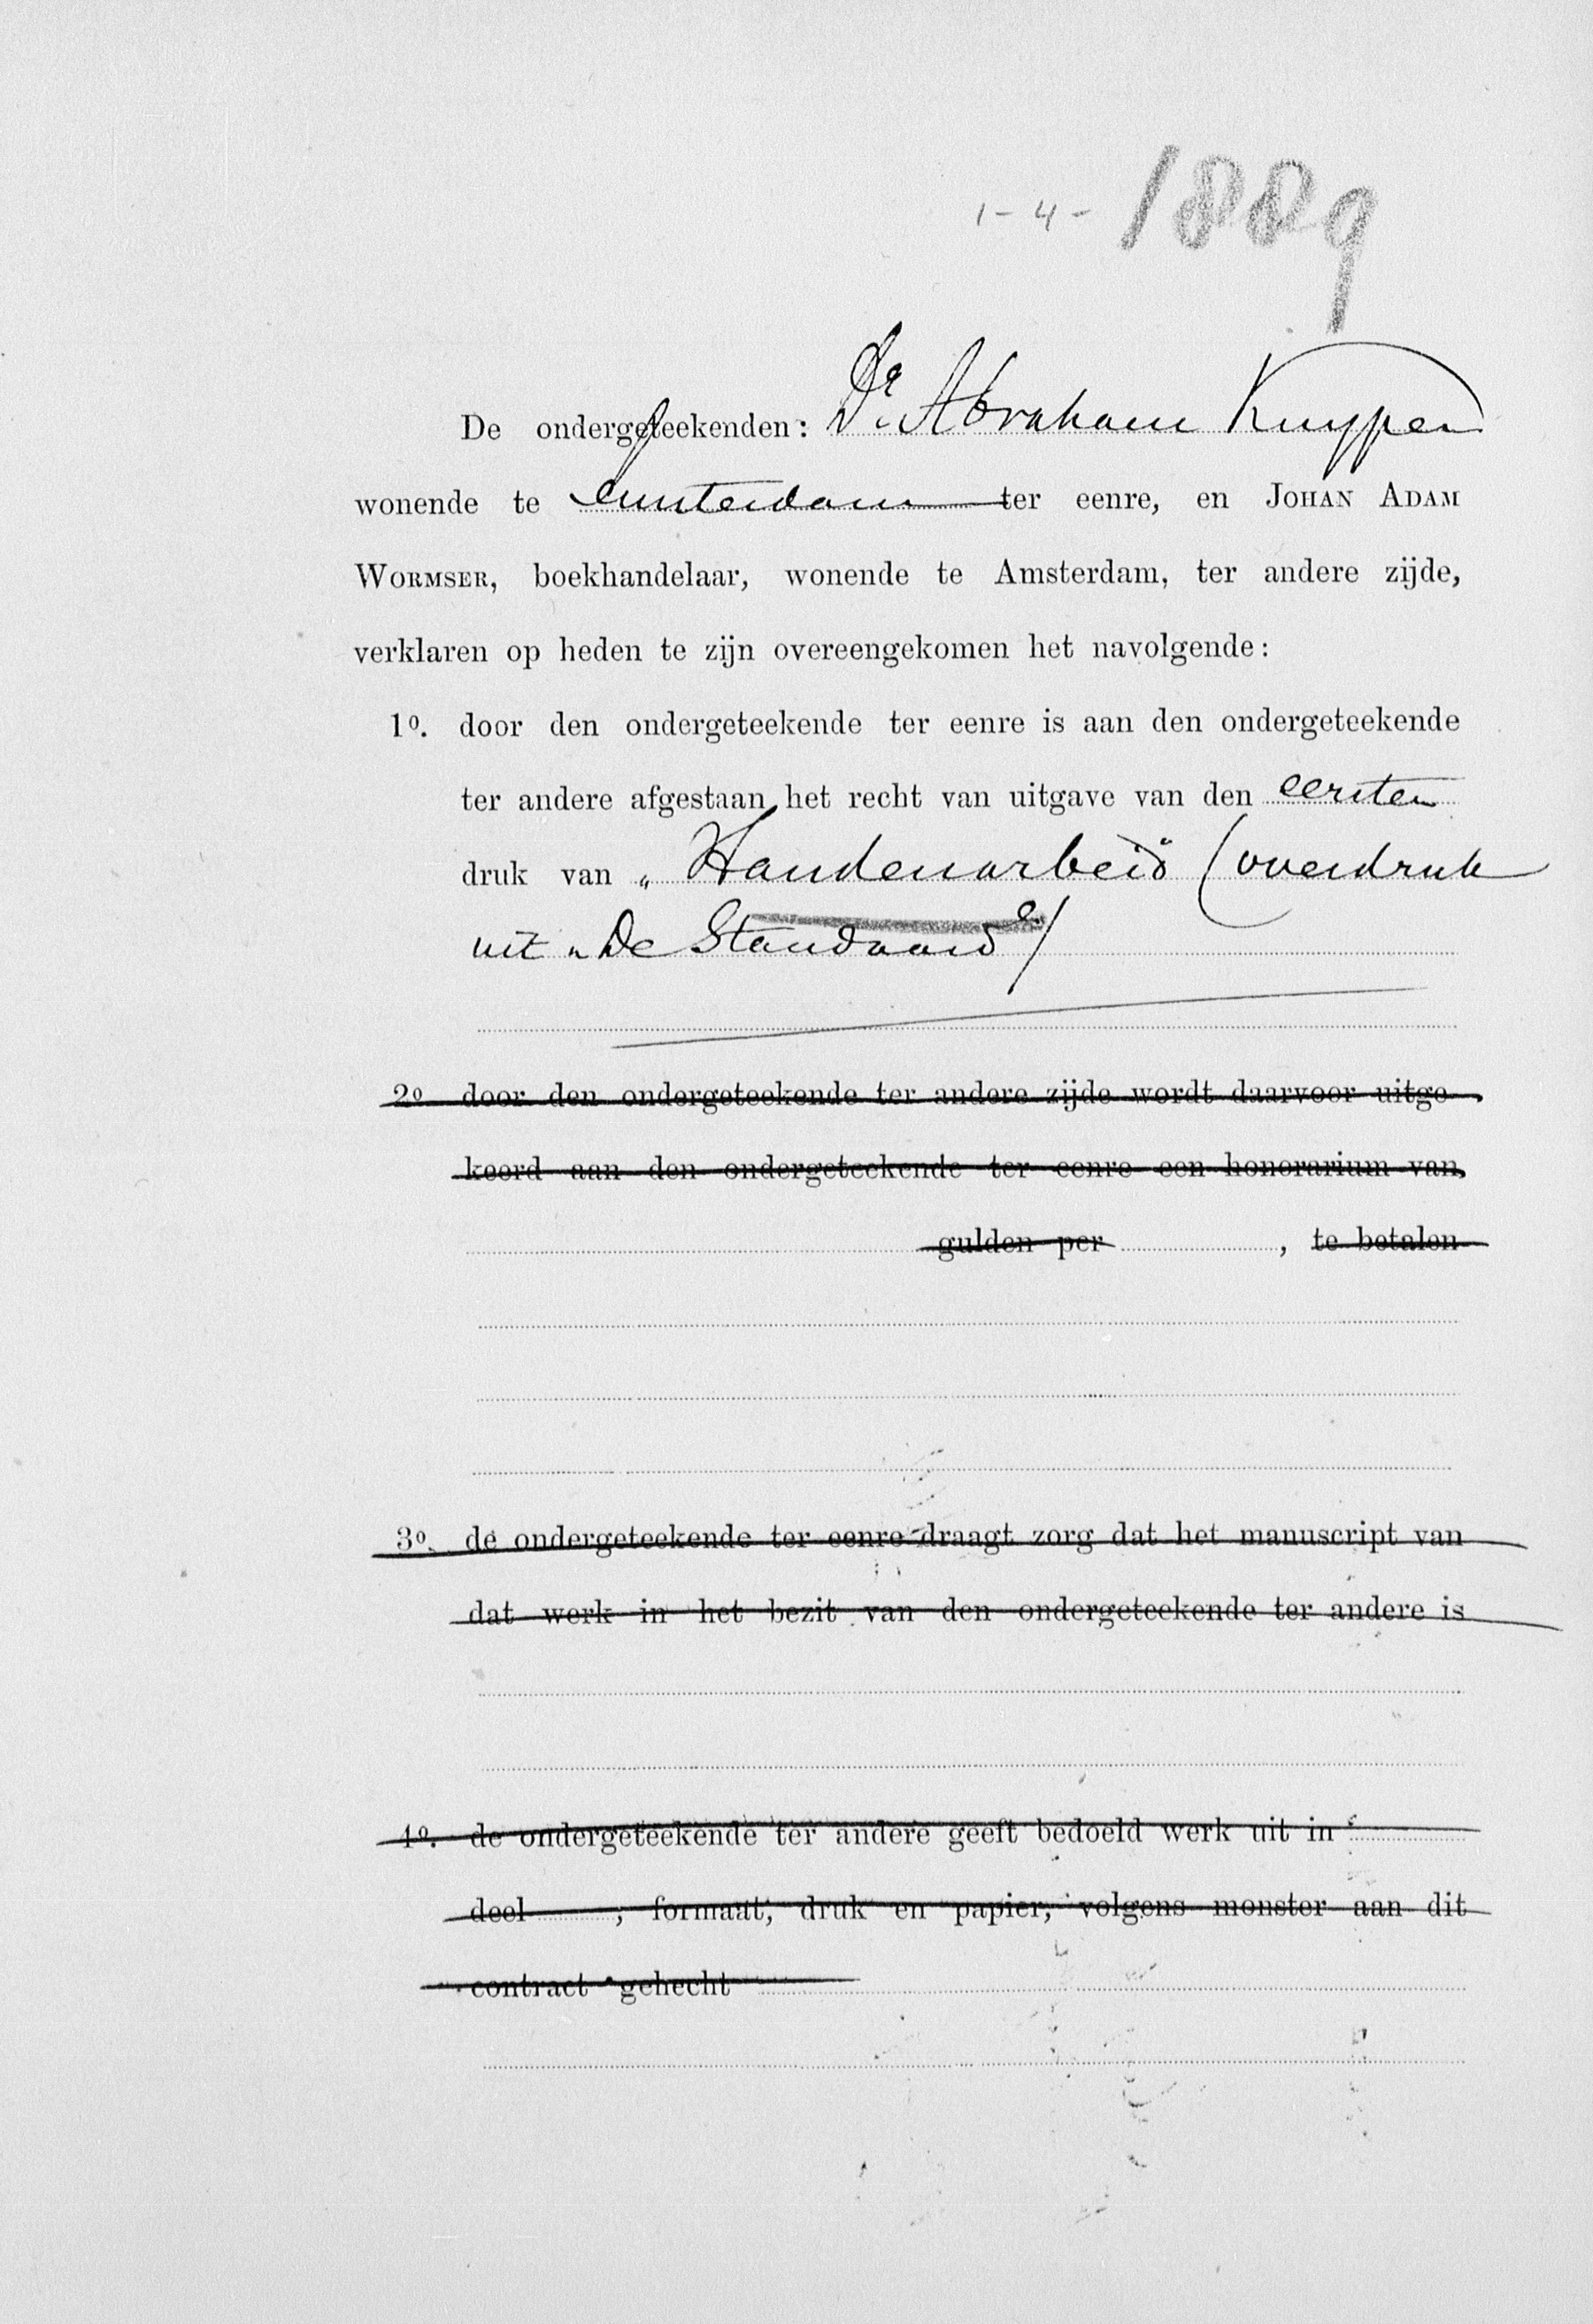 1-4-1889
De ondergeteekenden: Dr. Abraham Kuyper
wonende te Amsterdam ter eenre, en JOHAN ADAM
WORMSER, boekhandelaar, wonende te Amsterdam, ter andere zijde,
verklaren op heden te zijn overeengekomen het navolgende:
1º. door den ondergeteekende ter eenre is aan den ondergeteekende
ter andere afgestaan het recht van uitgave van den eersten
druk van „Handenarbeid" (overdruk
uit „De Standaard")
2º door den ondergeteekende ter andere zijde wordt daarvoor uitge-
keerd aan den ondergeteekende ter eenre een honorarium van
gulden per , te betalen
3º. de ondergeteekende ter eenre draagt zorg dat het manuscript van
dat werk in het bezit van den ondergeteekende ter andere is
4º. de ondergeteekende ter andere geeft bedoeld werk uit in
deel ; formaat, druk en papier, volgens monster aan dit
contract gehecht